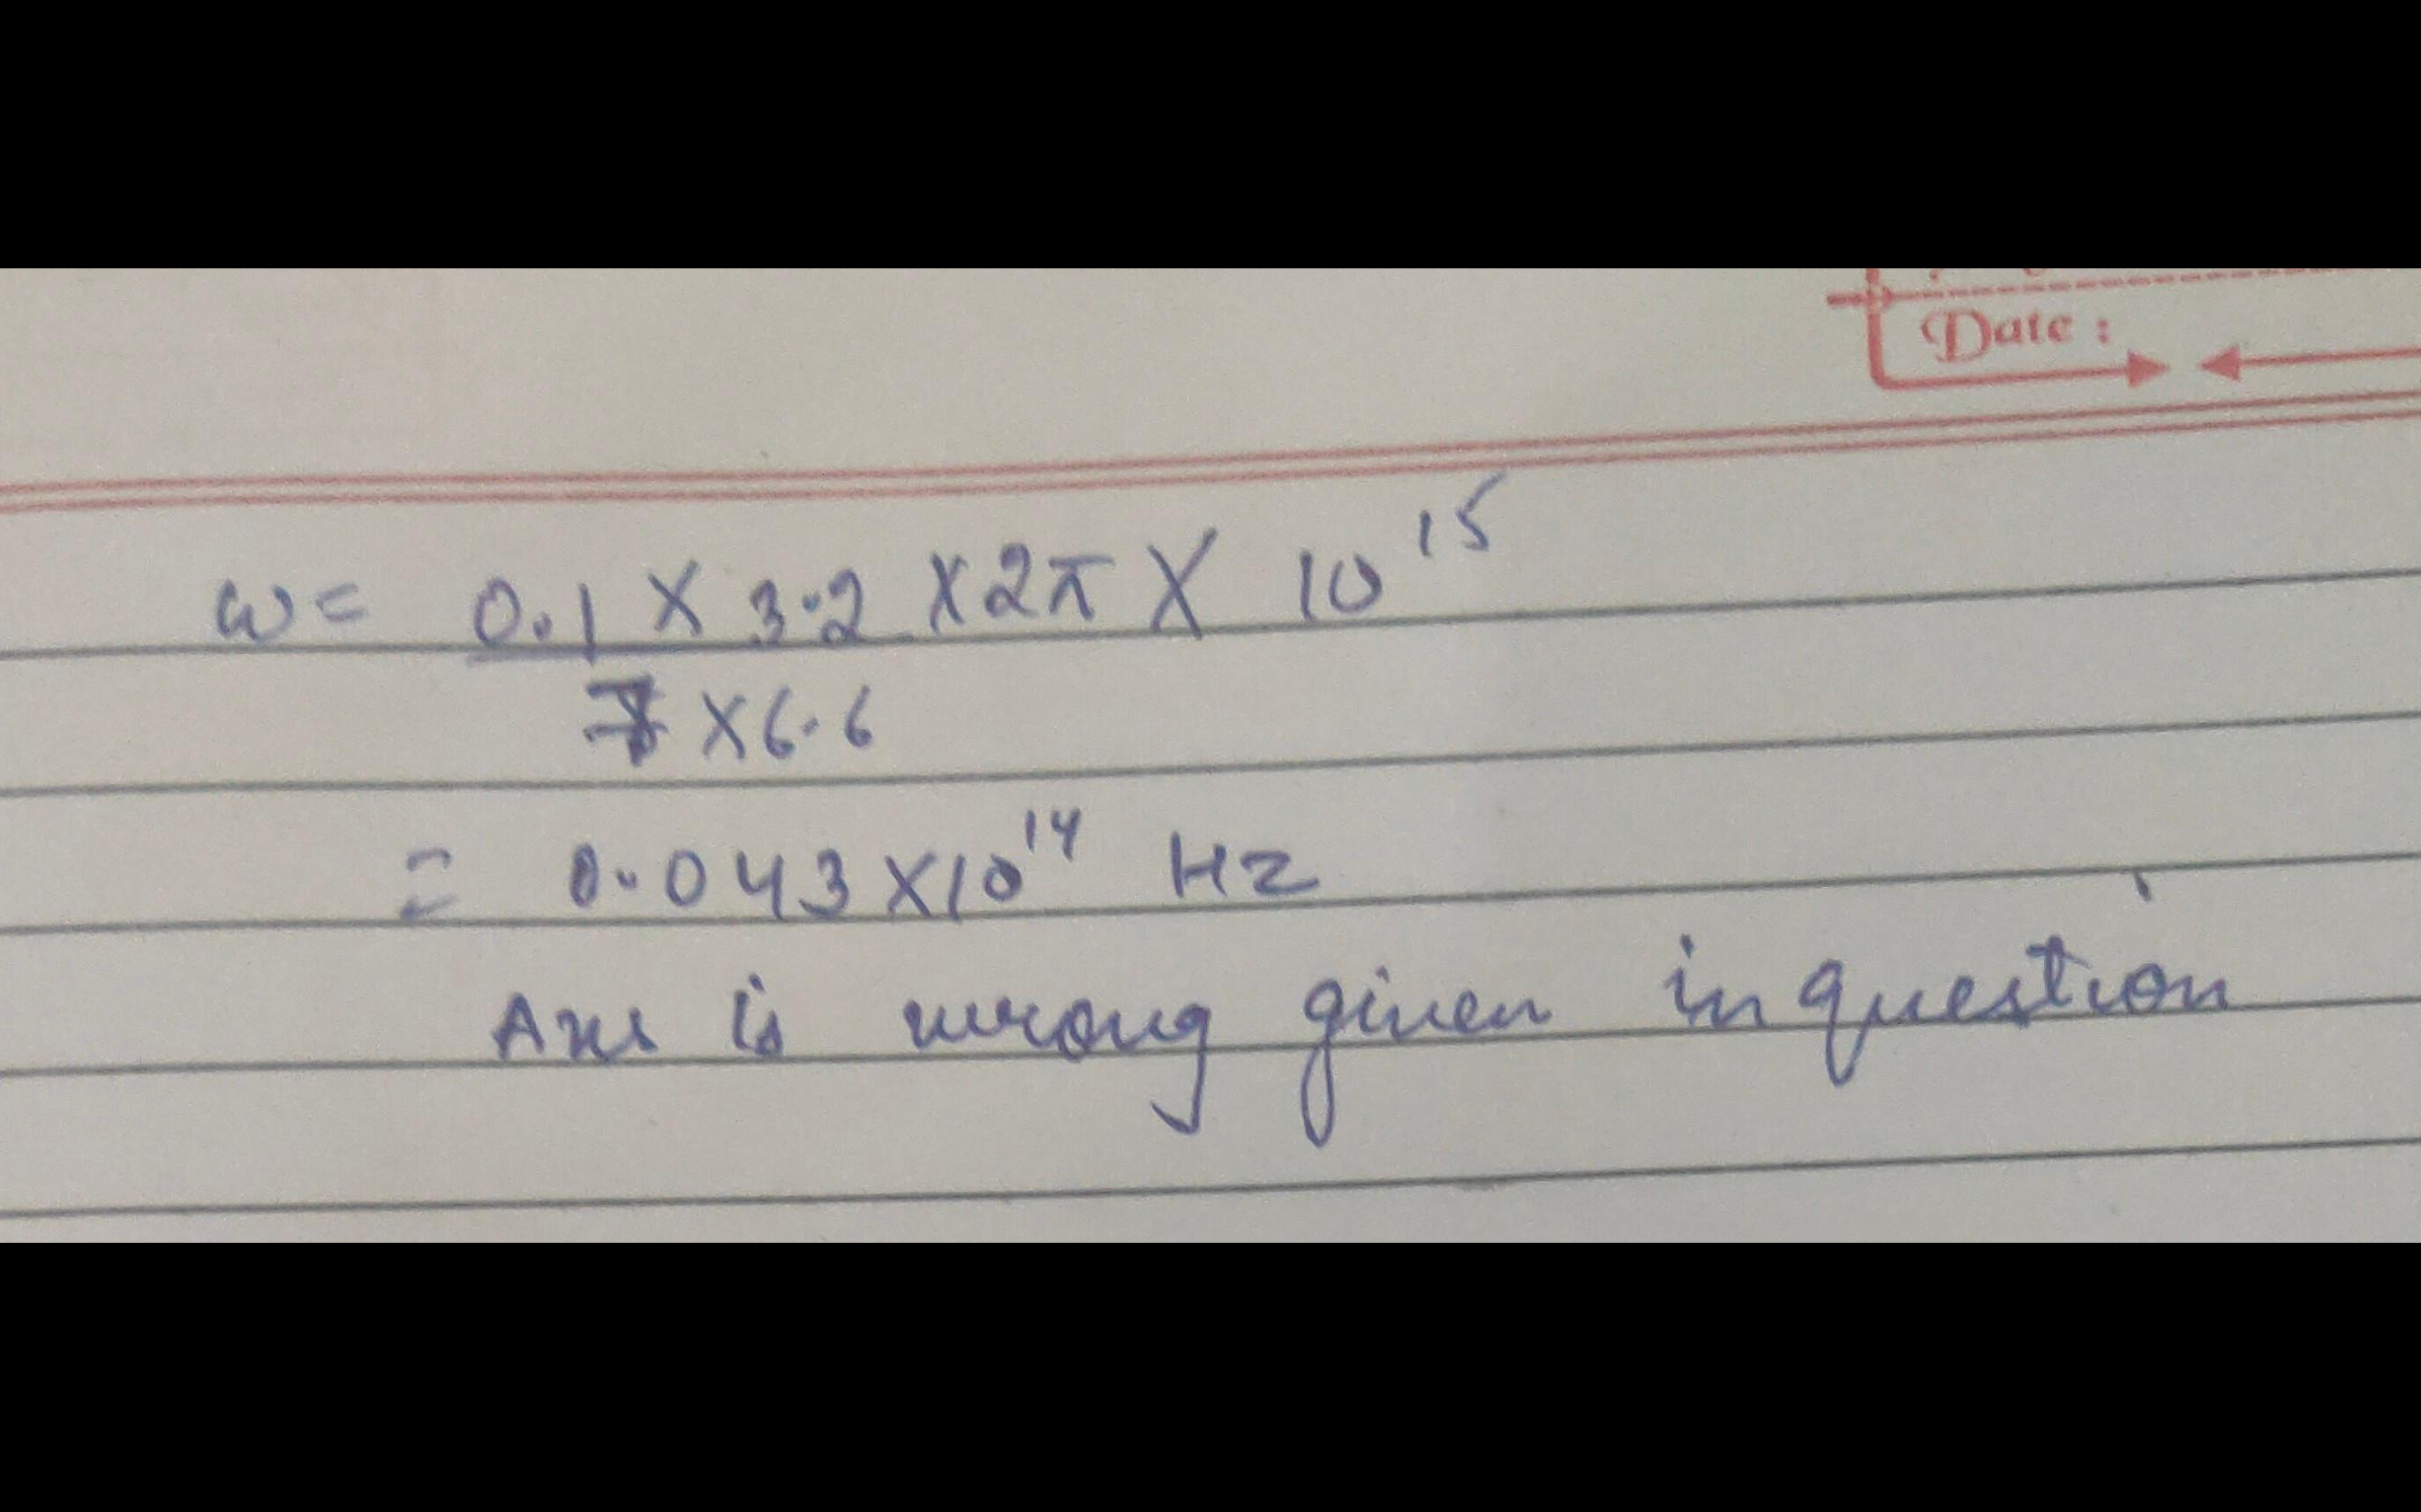 Date :
ω = 0.1 × 3.2 × 2π × 10^15
7 × 6.6
= 0.043 × 10^14 Hz
Ans is wrong given in question